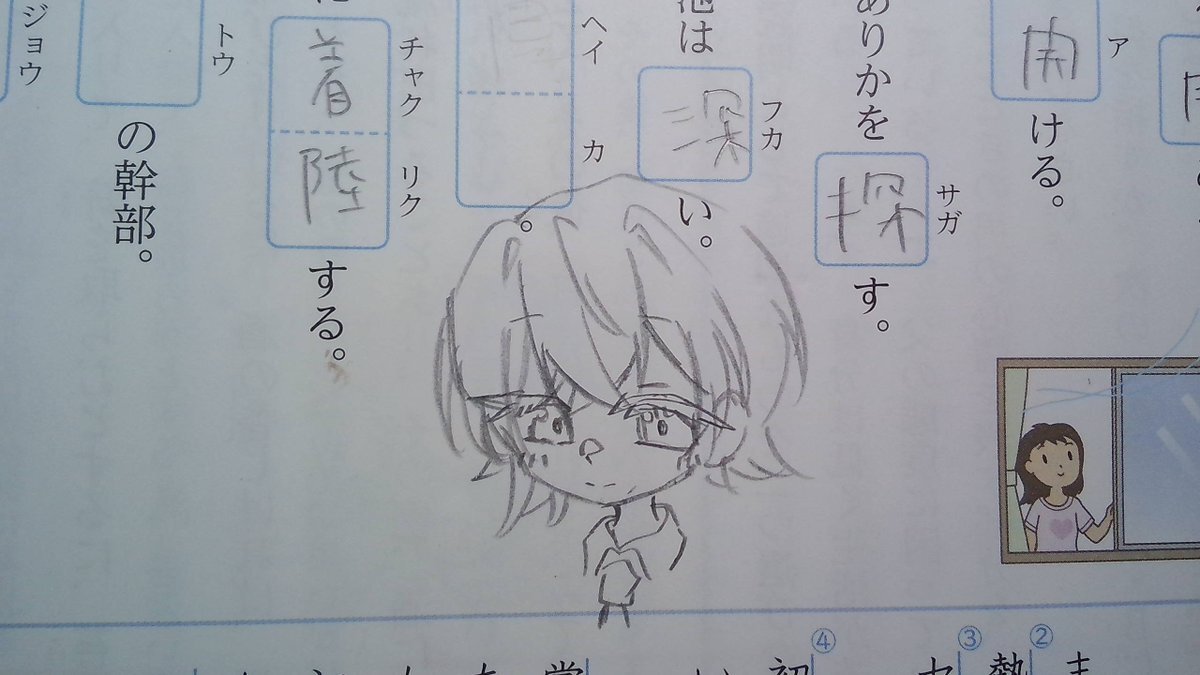 ア
開
ける。
ありかを
サガ
探
す。
池は
フカ
深
い。
ヘイ カ
。
チャク リク
着陸
する。
トウ
の幹部。
ジョウ
②
③
④
熱
初